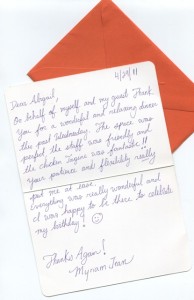 4/29/11
Dear Abigail,
On behalf of myself and my guest Thank
You for a wonderful and relaxing dinner
this past Wednesday. The space was
perfect the staff was friendly and
the chicken Tagine was fantastic!!
Your patience and flexibility really
put me at ease.
Everything was really wonderful and
I was happy to be there to celebrate
my birthday!
Thanks Again!
Myriam Jean